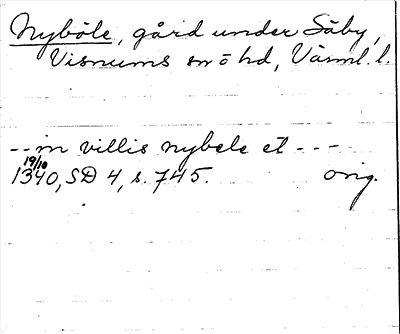 Nyböle, gård under Säby,
Visnums sn o hd, Värml. l.
-- in villis nybele et ---
19/10
1340, SD 4, s. 745. orig.